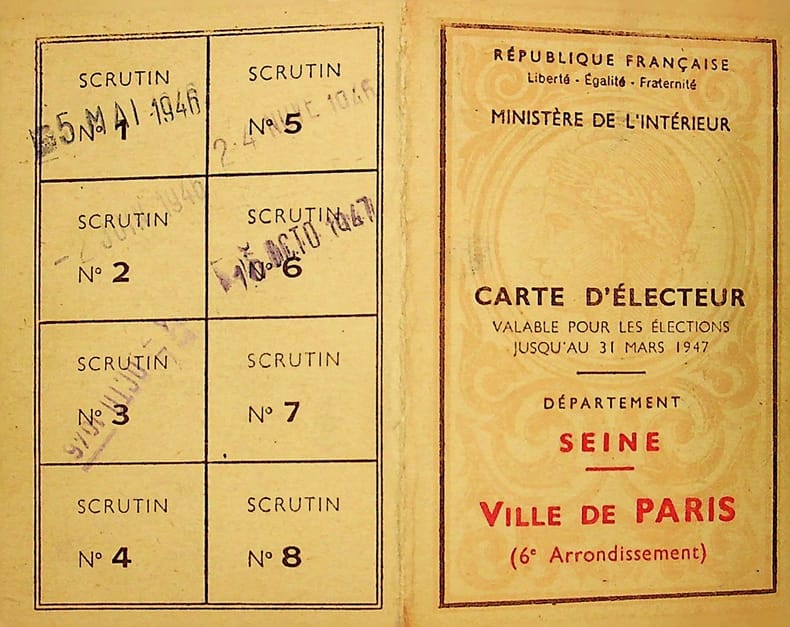 SCRUTIN
5 MAI 1946
Nº 1
SCRUTIN
Nº 5
1946
SCRUTIN
1946
Nº 2
SCRUTIN
OCTO 1947
Nº 6
SCRUTIN
Nº 3
SCRUTIN
Nº 7
SCRUTIN
Nº 4
SCRUTIN
Nº 8
RÉPUBLIQUE FRANÇAISE
Liberté - Égalité - Fraternité
MINISTÈRE DE L'INTÉRIEUR
CARTE D'ÉLECTEUR
VALABLE POUR LES ÉLECTIONS
JUSQU'AU 31 MARS 1947
DÉPARTEMENT
SEINE
VILLE DE PARIS
(6e Arrondissement)